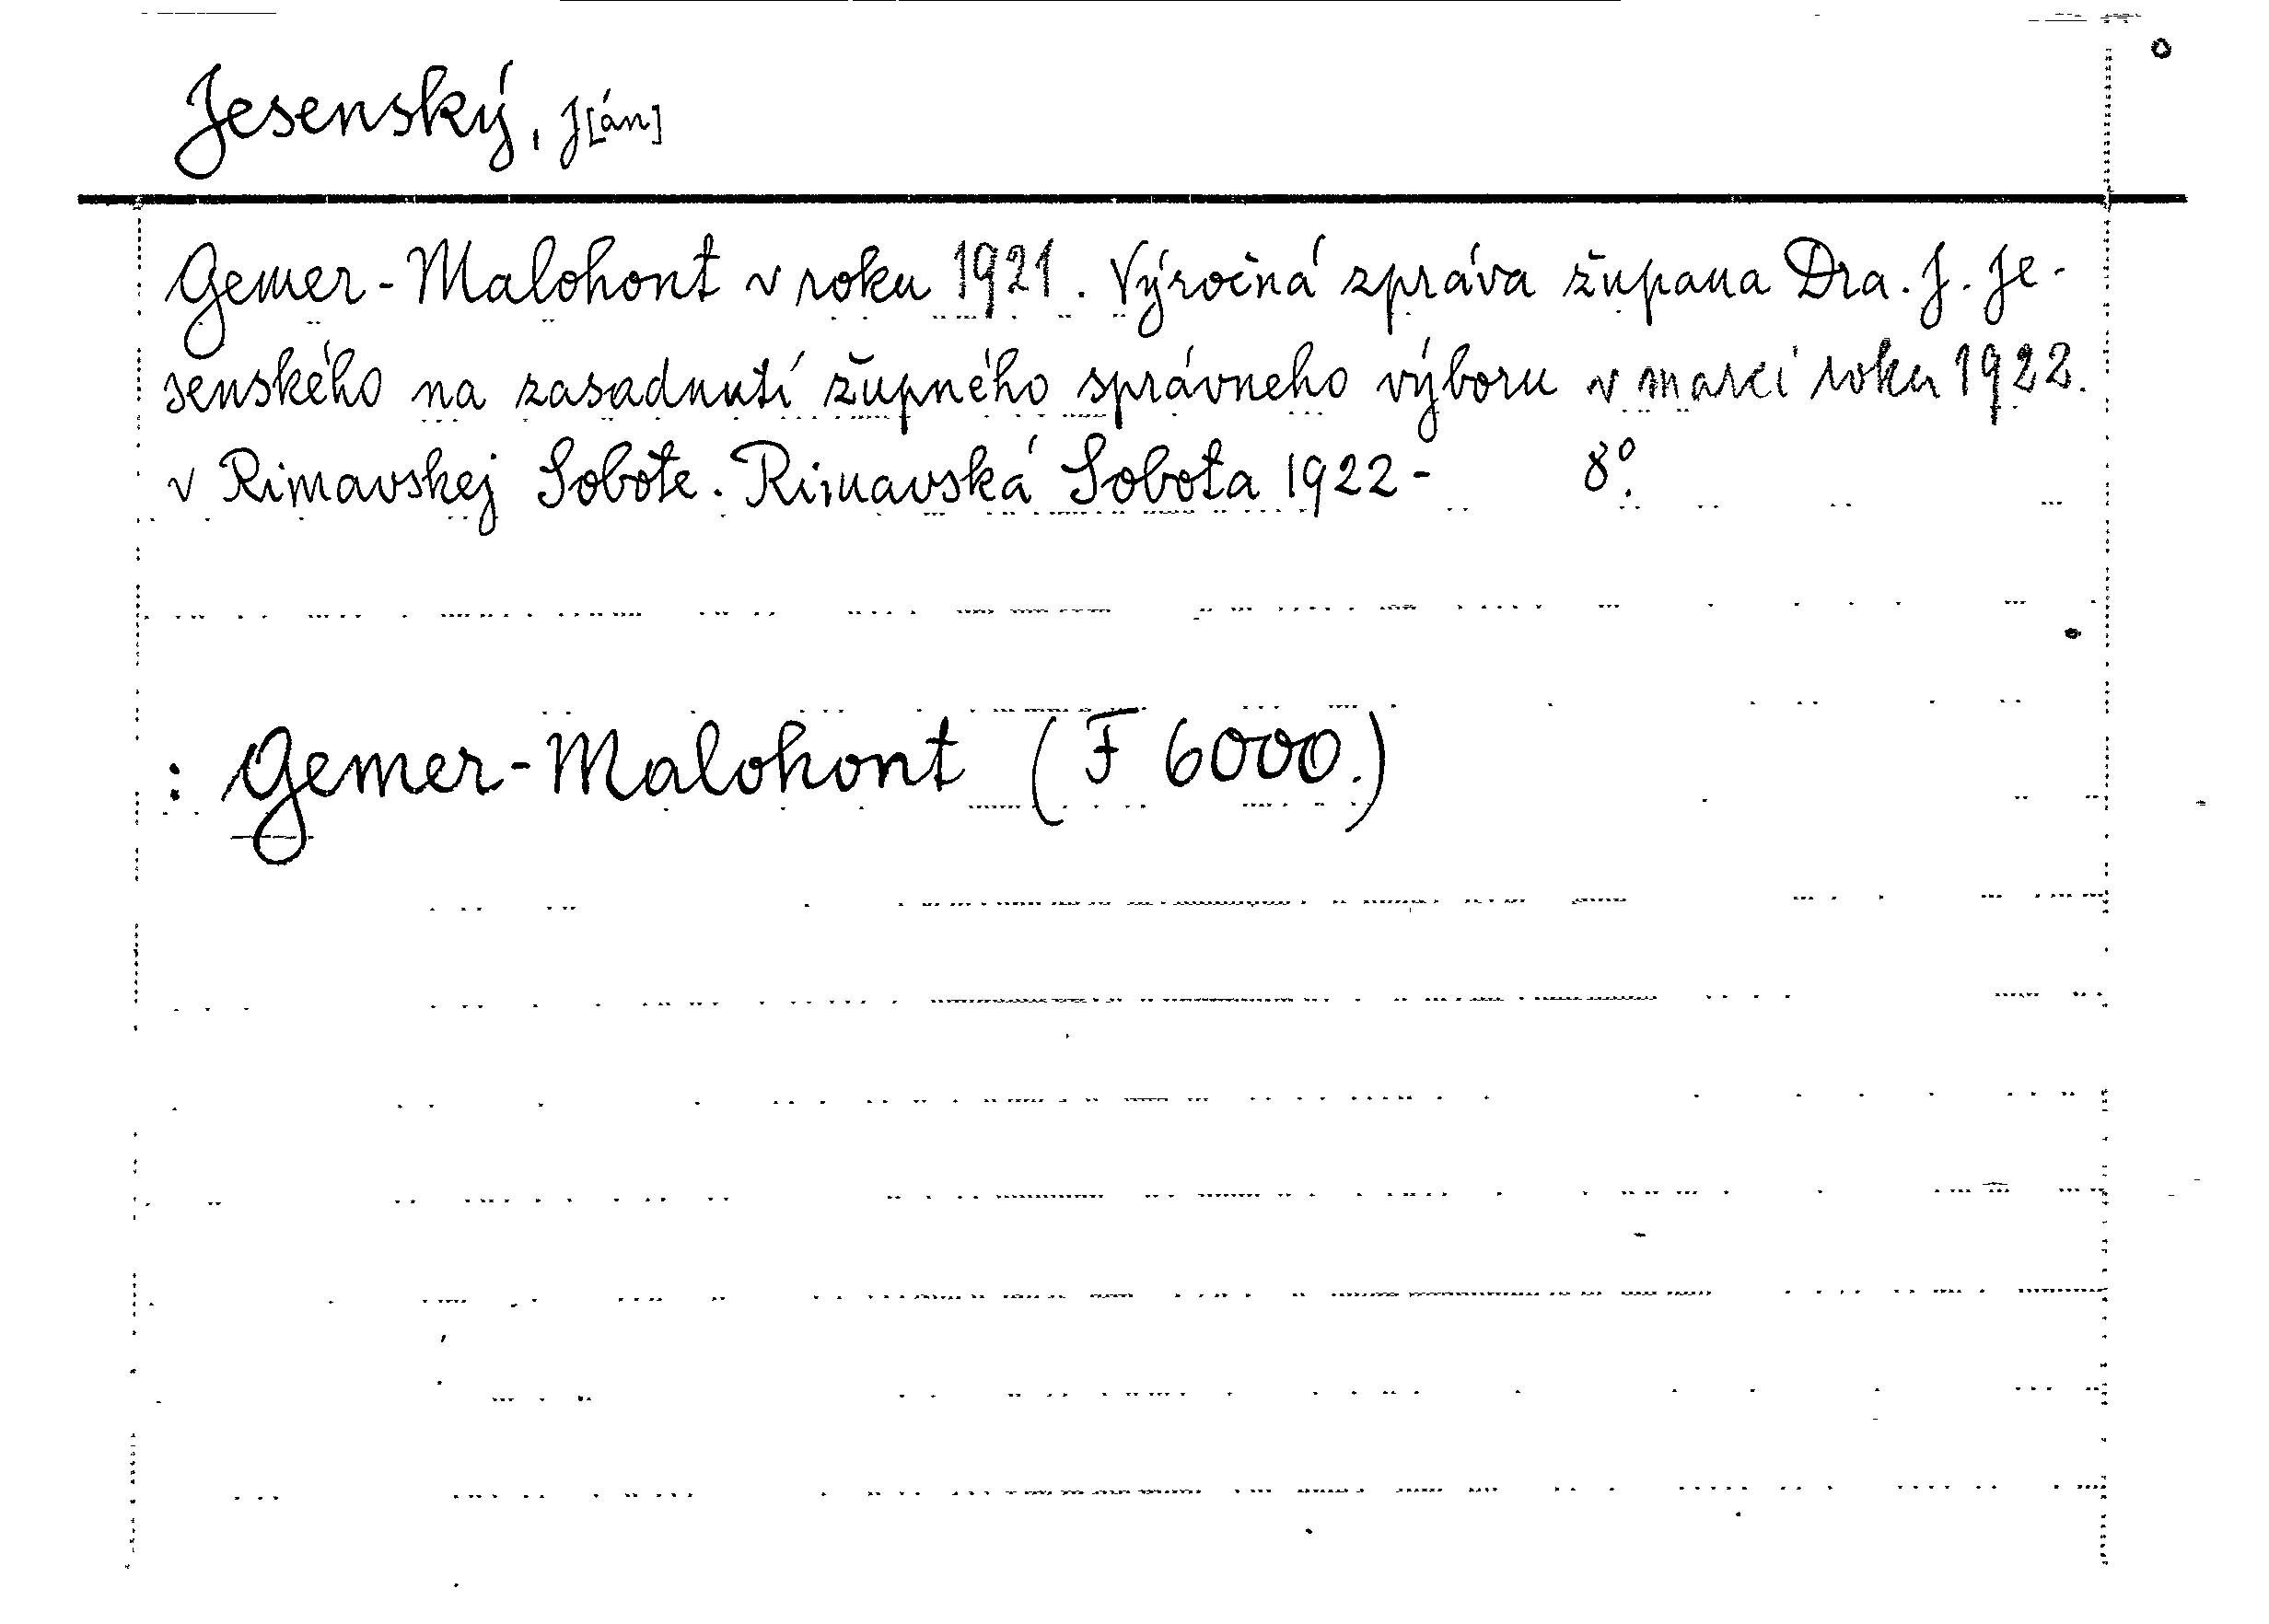 Jesenský, J[án]
Gemer-Malohont v roku 1921. Výročná zpráva župana Dra. J. Je-
senského na zasadnutí župného správneho výboru v marci roku 1922.
v Rimavskej Sobote. Rimavská Sobota 1922- 8°.
: Gemer-Malohont (F 6000.)